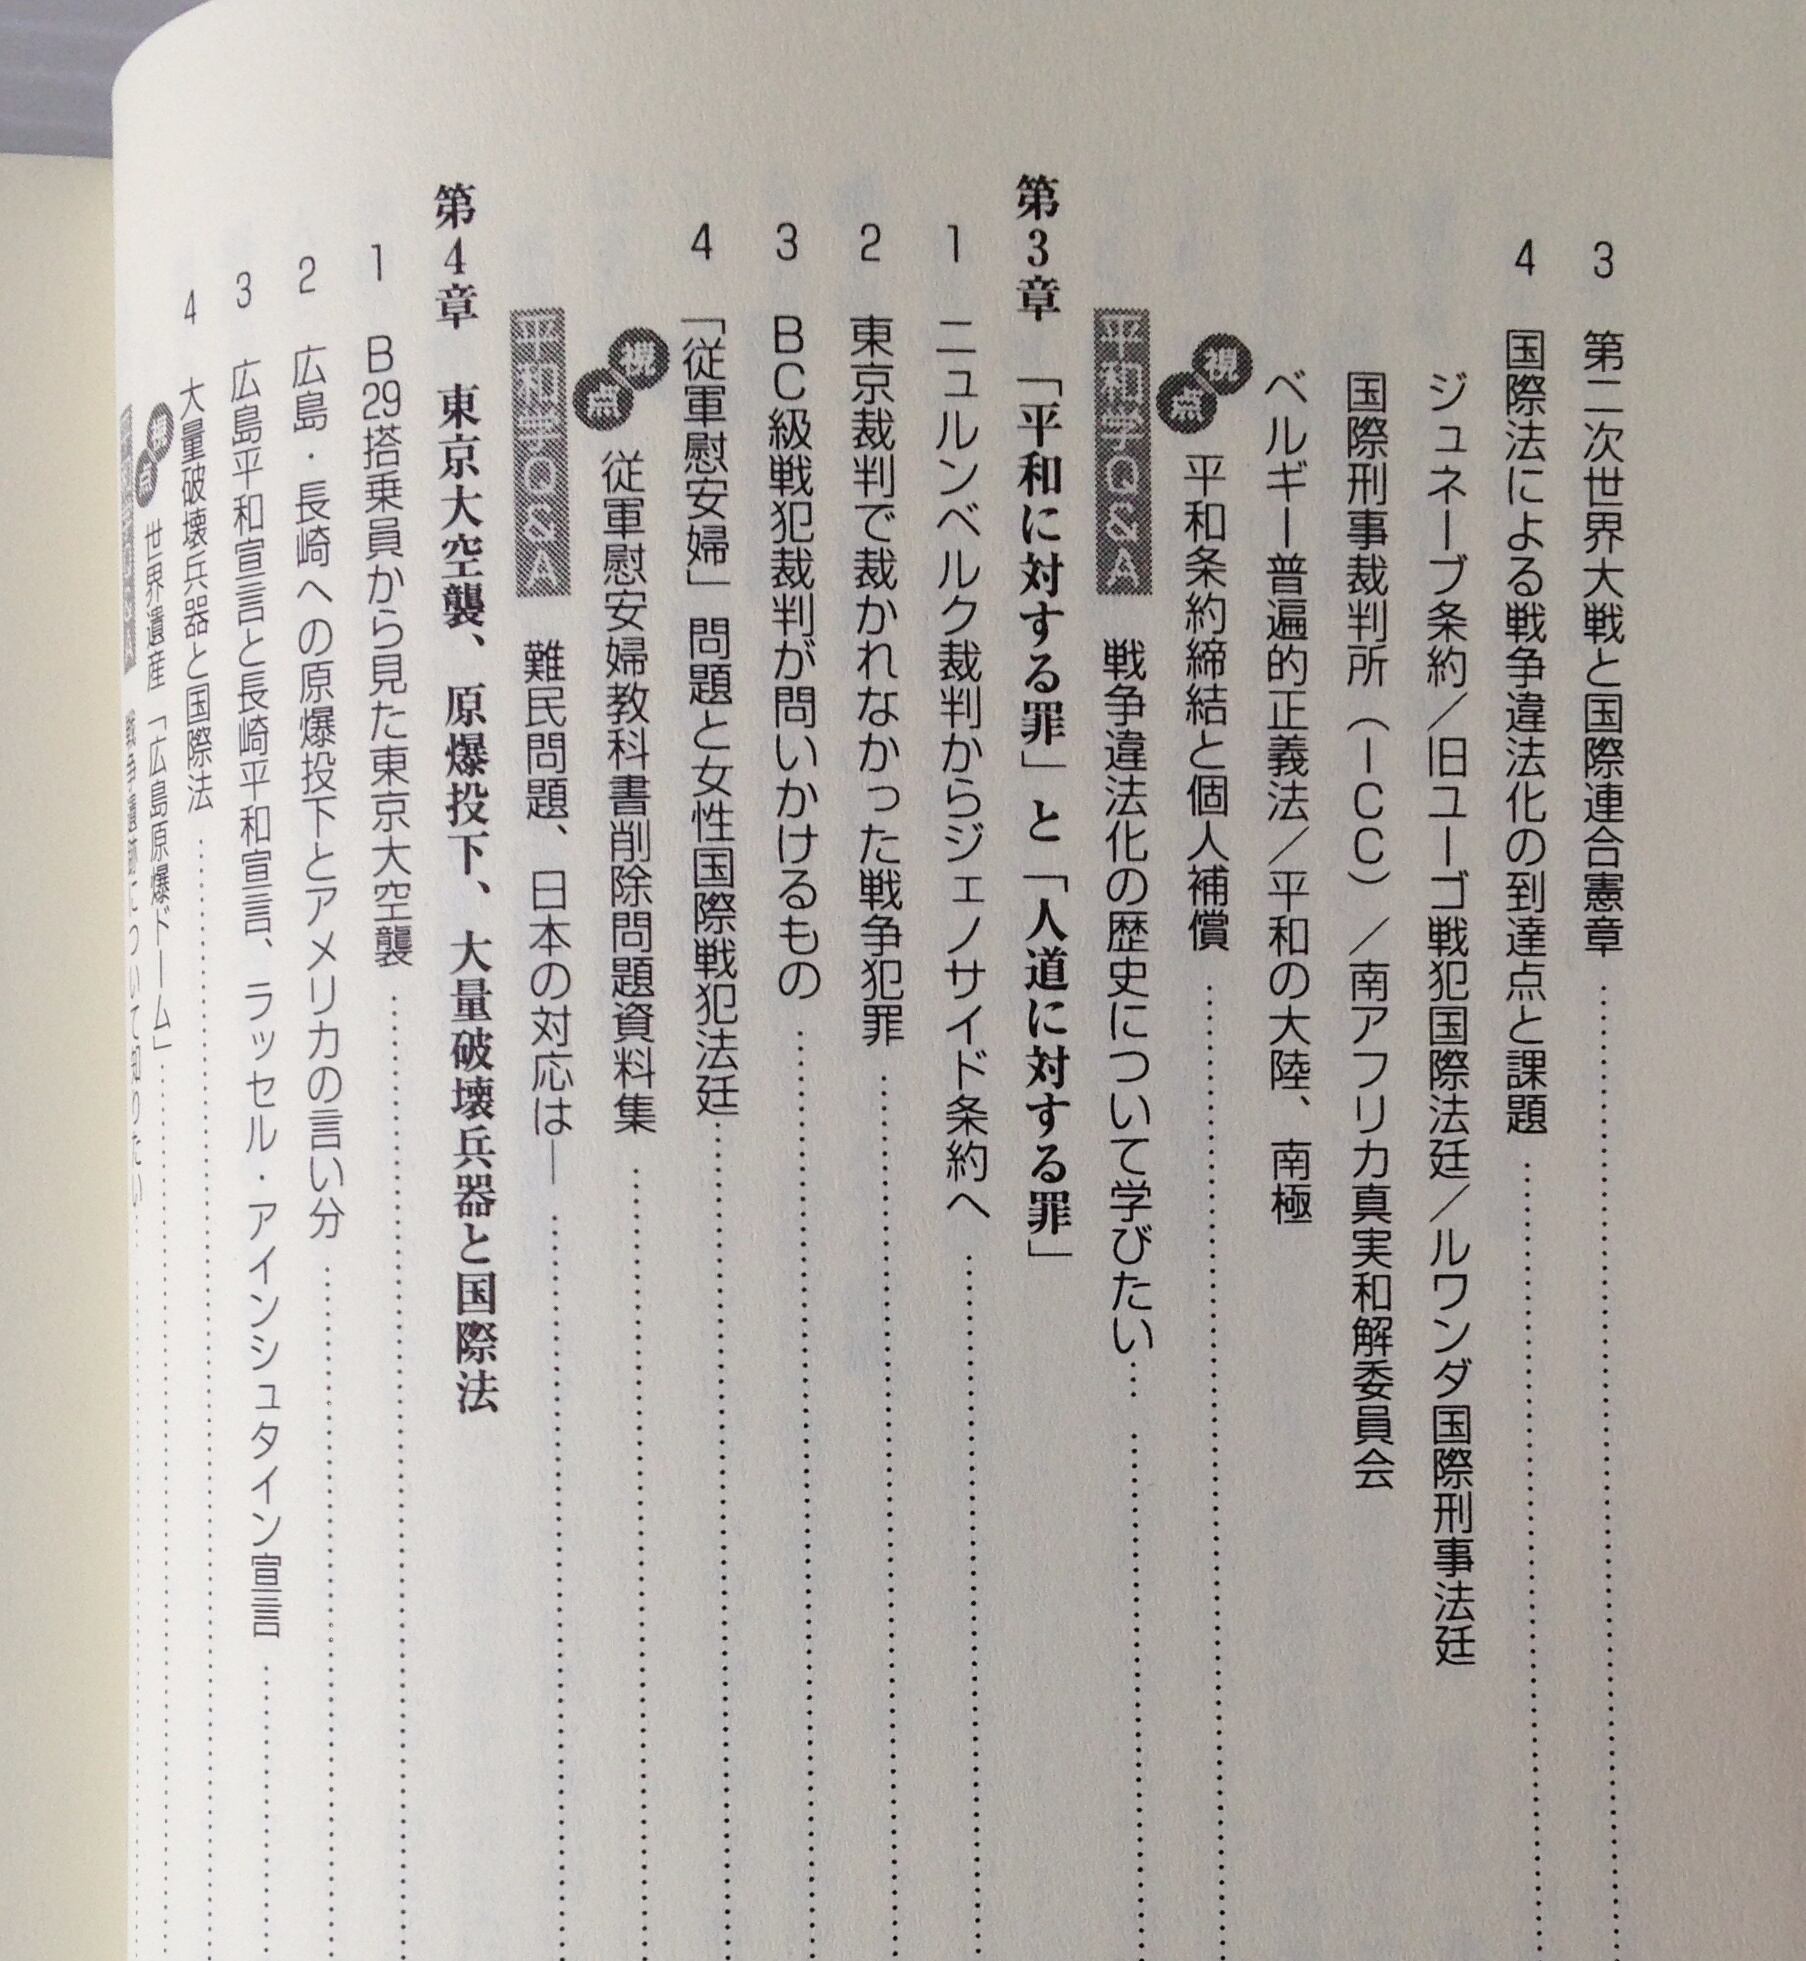 3 第二次世界大戦と国際連合憲章
4 国際法による戦争違法化の到達点と課題
ジュネーブ条約／旧ユーゴ戦犯国際法廷／ルワンダ国際刑事法廷
国際刑事裁判所（ICC）／南アフリカ真実和解委員会
ベルギー普遍的正義法／平和の大陸、南極
視点 平和条約締結と個人補償
平和学Q&A 戦争違法化の歴史について学びたい…
第3章 「平和に対する罪」と「人道に対する罪」
1 ニュルンベルク裁判からジェノサイド条約へ
2 東京裁判で裁かれなかった戦争犯罪
3 BC級戦犯裁判が問いかけるもの
4 「従軍慰安婦」問題と女性国際戦犯法廷
視点 従軍慰安婦教科書削除問題資料集
平和学Q&A 難民問題、日本の対応は―
第4章 東京大空襲、原爆投下、大量破壊兵器と国際法
1 B29搭乗員から見た東京大空襲
2 広島・長崎への原爆投下とアメリカの言い分
3 広島平和宣言と長崎平和宣言、ラッセル・アインシュタイン宣言
4 大量破壊兵器と国際法
視点 世界遺産「広島原爆ドーム」
戦争遺跡について知りたい